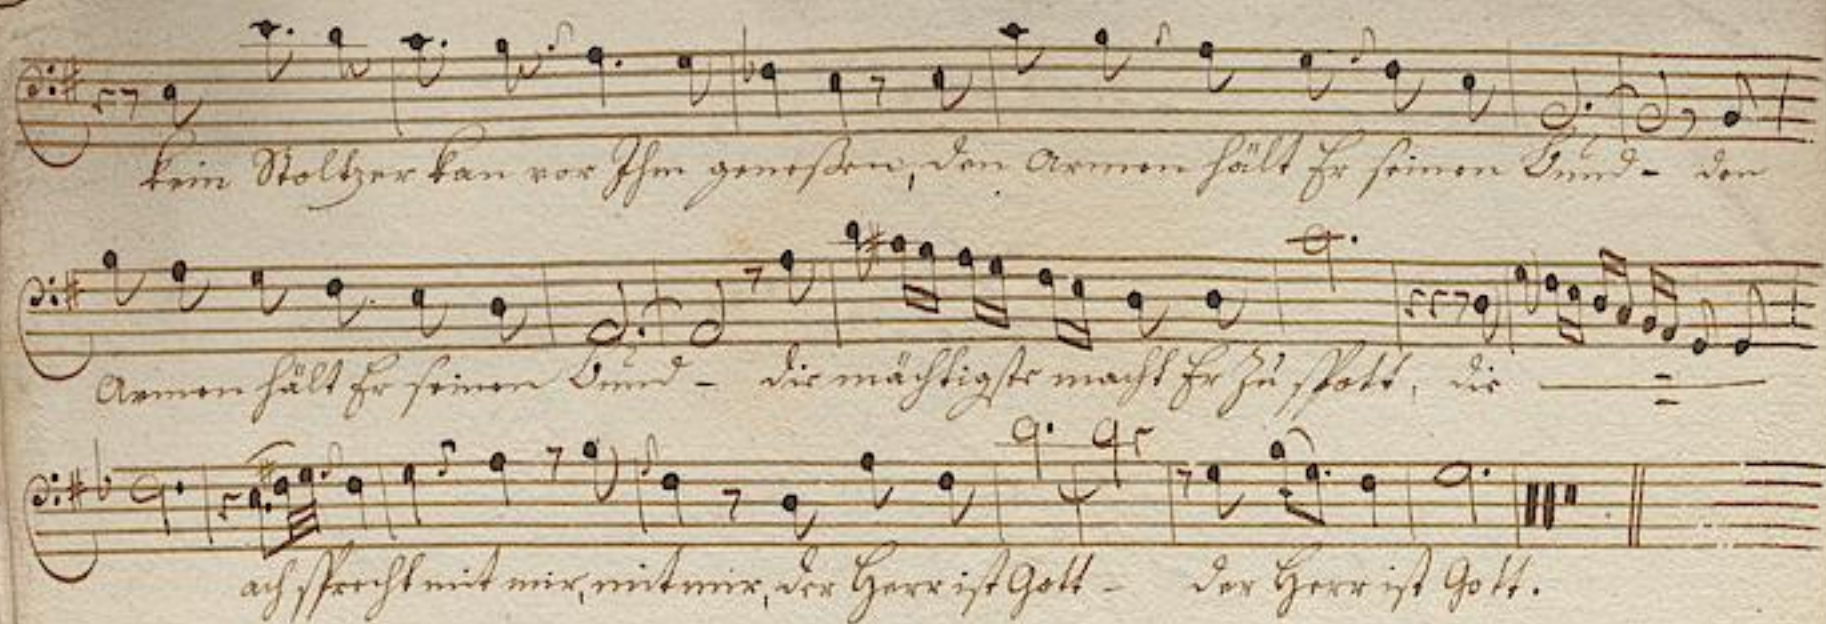 kein Stoltzer kan vor Ihm geneßen, den Armen hält Er seinen Bund - den
Armen hält Er seinen Bund - die mächtigste macht Er Zu spott, die
ach sprecht mit mir, mit mir, der Herr ist Gott - der Herr ist Gott.